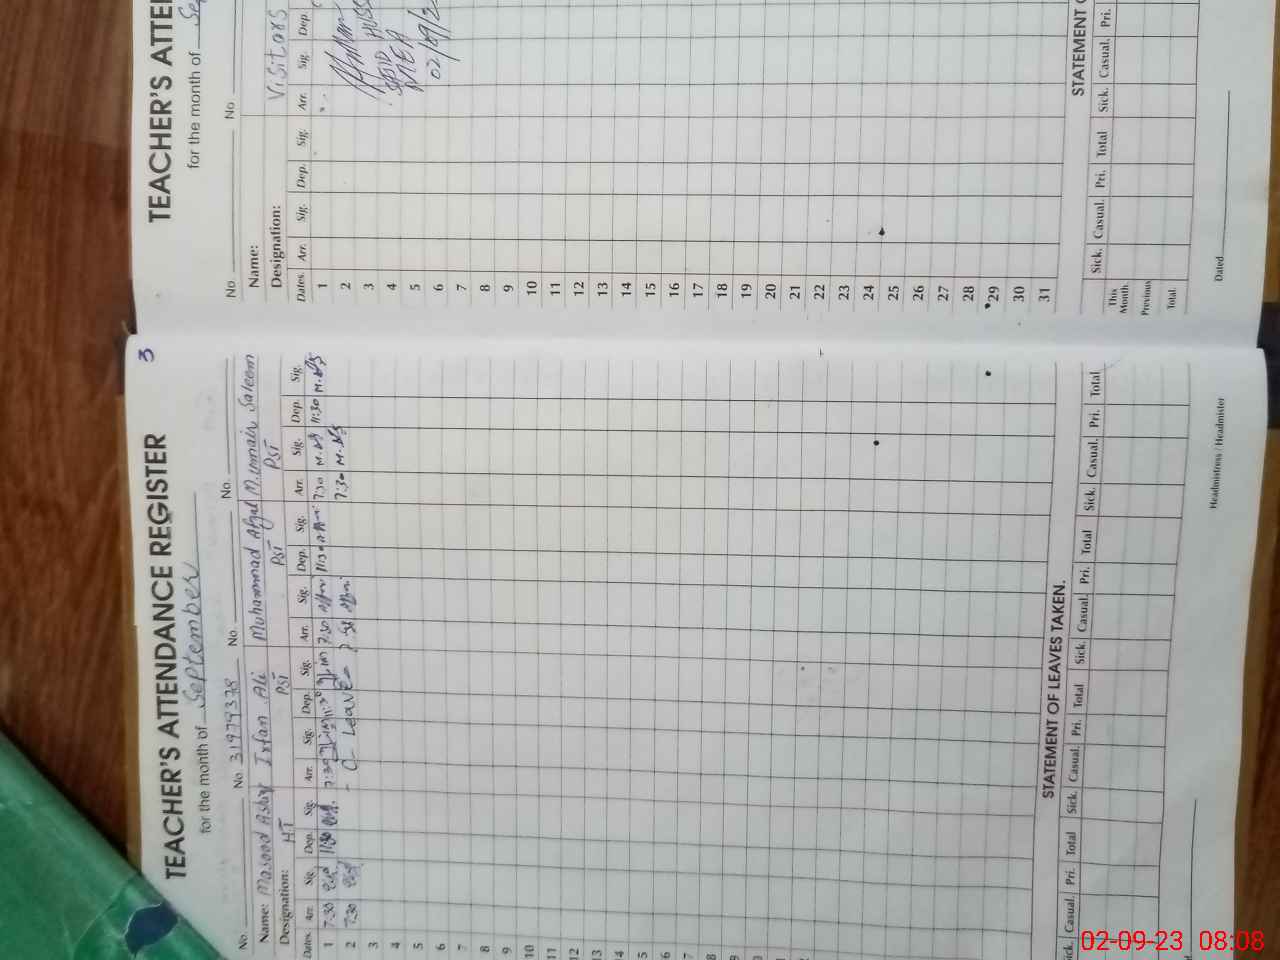 3
TEACHER'S ATTENDANCE REGISTER
for the month of September
No. No. 31979378 No. No.
Name: Masood Ashraf Irfan Ali Muhammad Afzal M. Umair Saleem
Designation: H.T PST PST PST
Dates. Arr. Sig. Dep. Sig. Arr. Sig. Dep. Sig. Arr. Sig. Dep. Sig. Arr. Sig. Dep. Sig.
1 7:30 11:30 7:30 11:30 7:30 11:30 7:30 11:30
2 7:30 - C- Leave - 7:30 7:30
3
4
5
6
7
8
9
10
11
12
13
14
15
16
7
8
9
STATEMENT OF LEAVES TAKEN.
Sick. Casual. Pri. Total Sick. Casual. Pri. Total Sick. Casual. Pri. Total Sick. Casual. Pri. Total
Headmistress / Headmister
TEACHER'S ATTE
for the month of Se
No. No
Name:
Designation: Visitors
Dates. Arr. Sig. Dep. Sig. Arr. Sig. Dep.
1
2
3
4
5
6
7
8
9
10
11
12
13
14
15
16
17
18
19
20
21
22
23
24
25
26
27
28
29
30
31
02/09/2
STATEMENT O
Sick. Casual. Pri. Total Sick. Casual. Pri.
This Month.
Previous
Total.
Dated
02-09-23 08:08